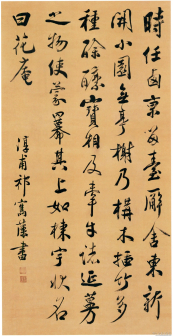 時任西京留臺廨舍東新
開小園無亭榭乃構木插竹多
種酴醾寶相及牽牛諸延蔓
之物使蒙冪其上如棟宇狀名
曰花庵
淳甫祁寯藻書